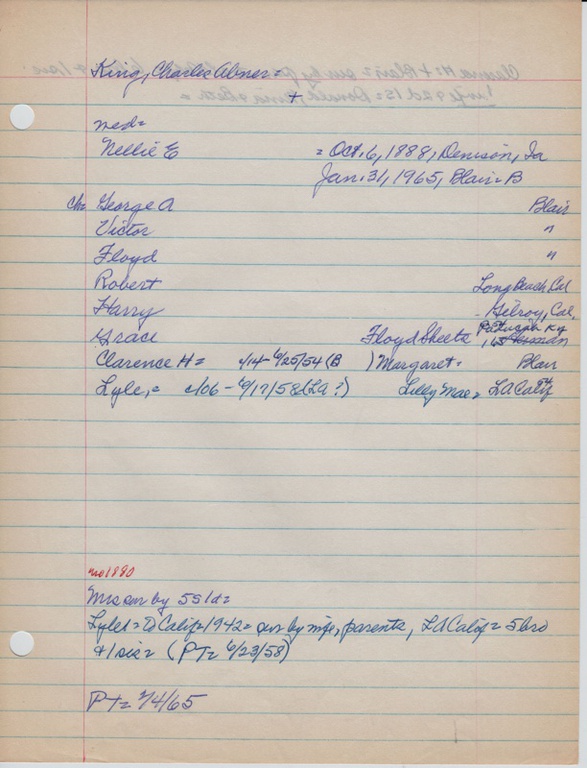 King, Charles Abner =
+
med=
Nellie E = Oct. 6, 1888, Denison, Ia
Jan. 31, 1965, Blair = B
ch= George A Blair
Victor "
Floyd "
Robert Long Beach Cal
Harry Gilroy, Cal,
Grace Floyd Sheets Paducah Ky
Clarence H = c/14 - 6/25/54 (B ) Margaret = Blair
Lyle, = c/06 - 6/17/58 (LA ?) Lilly Mae, LA Calif
no 1890
Mrs sur by 5s 1d =
Lyle 1 = to Calif = 1942 = sur by wife, parents, LA Calif = 5 bro
& 1 sis = (PT = 6/23/58)
PT = 2/4/65